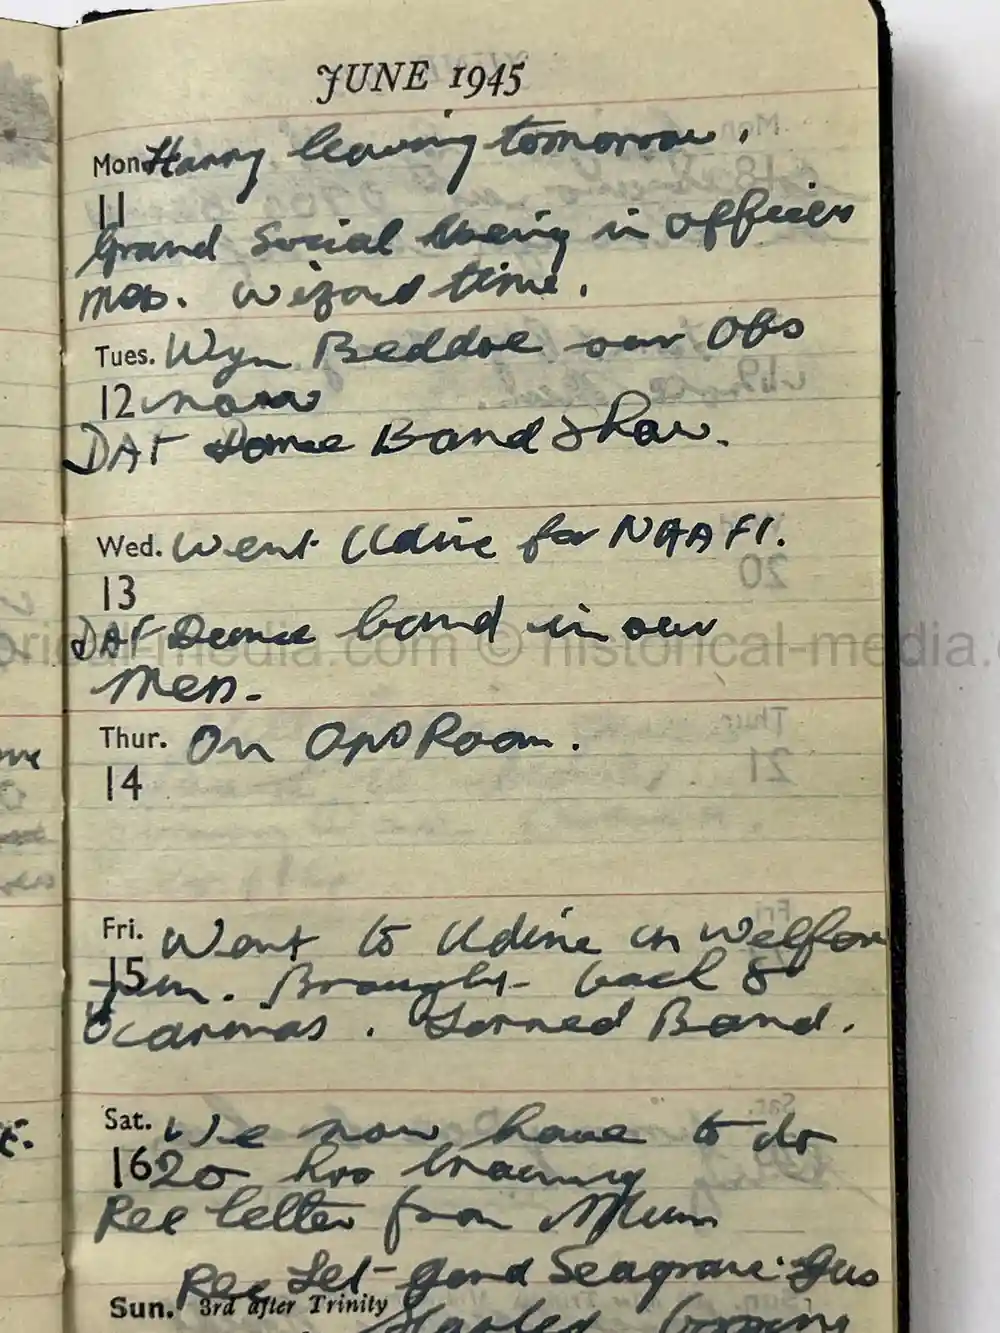 JUNE 1945
Mon. Harry leaving tomorrow.
11
Grand Social Evening in officers
Mess. Wizard time.
Tues. Wyn Beddoe our Obs
12 now
DAF Dance Band Show.
Wed. Went Udine for NAAFI.
13
DAF Dance band in our
Mess.
Thur. On Ops Room.
14
Fri. Went to Udine in Welfare
15 Brought back 8
Ocarinas. Formed Band.
Sat. We now have to do
16 20 hrs training
Rec letter from Mum
Rec Let- Seagrave. Gus
Sun. 3rd after Trinity
Started
historical-media.com © historical-media.c